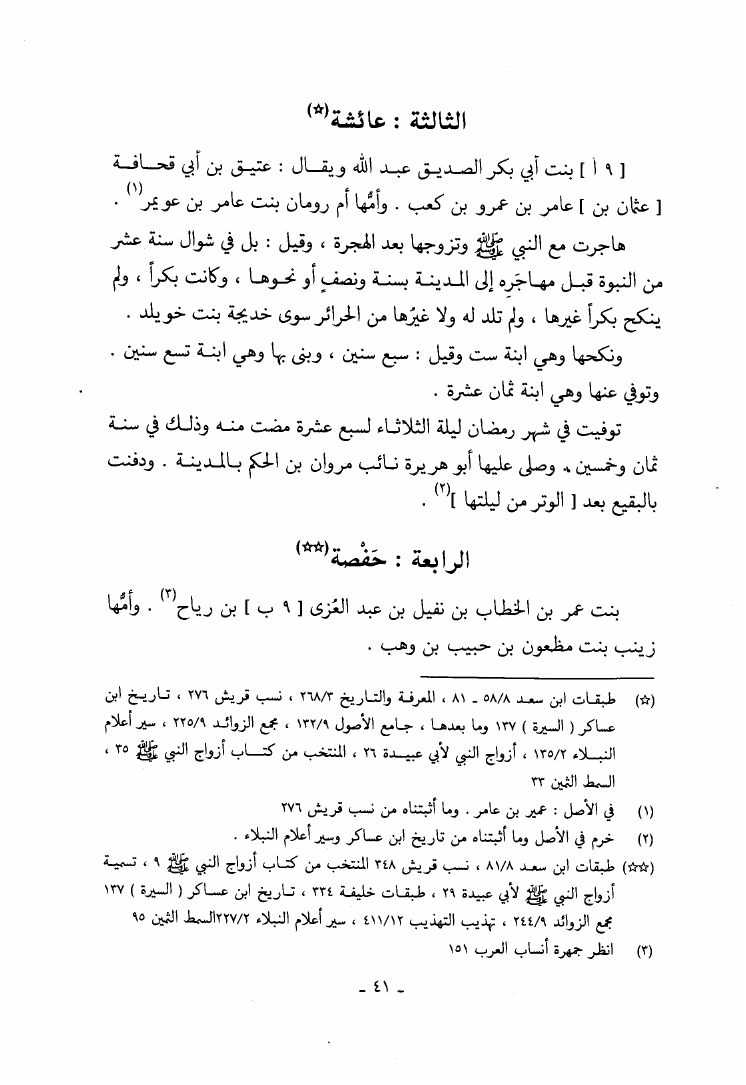 الثالثة : عائشة(☆)
[ ٩ أ ] بنت أبي بكر الصديق عبد الله ويقال : عتيق بن أبي قحافة
[ عثمان بن ] عامر بن عمرو بن كعب . وأمُّها أم رومان بنت عامر بن عويمر(١) .
هاجرت مع النبي ﷺ وتزوجها بعد الهجرة ، وقيل : بل في شوال سنة عشر
من النبوة قبل مهاجَرِه إلى المدينة بسنة ونصفٍ أو نحوها ، وكانت بكراً ، ولم
ينكح بكراً غيرها ، ولم تلد له ولا غيرُها من الحرائر سوى خديجة بنت خويلد .
ونكحها وهي ابنة ست وقيل : سبع سنين ، وبنى بها وهي ابنة تسع سنين .
وتوفي عنها وهي ابنة ثمان عشرة .
توفيت في شهر رمضان ليلة الثلاثاء لسبع عشرة مضت منه وذلك في سنة
ثمان وخمسين . وصلى عليها أبو هريرة نائب مروان بن الحكم بالمدينة . ودفنت
بالبقيع بعد [ الوتر من ليلتها ](٢) .
الرابعة : حَفْصة(☆☆)
بنت عمر بن الخطاب بن نفيل بن عبد العُزى [ ٩ ب ] بن رياح(٣) . وأمُّها
زينب بنت مظعون بن حبيب بن وهب .
(☆) طبقات ابن سعد ٥٨/٨ ـ ٨١ ، المعرفة والتاريخ ٢٦٨/٣ ، نسب قريش ٢٧٦ ، تاريخ ابن
عساكر ( السيرة ) ١٣٧ وما بعدها ، جامع الأصول ١٣٢/٩ ، مجمع الزوائد ٢٢٥/٩ ، سير أعلام
النبلاء ١٣٥/٢ ، أزواج النبي لأبي عبيدة ٢٦ ، المنتخب من كتاب أزواج النبي ﷺ ٣٥ ،
السمط الثمين ٣٣
(١) في الأصل : عمير بن عامر . وما أثبتناه من نسب قريش ٢٧٦
(٢) خرم في الأصل وما أثبتناه من تاريخ ابن عساكر وسير أعلام النبلاء .
(☆☆) طبقات ابن سعد ٨١/٨ ، نسب قريش ٣٤٨ المنتخب من كتاب أزواج النبي ﷺ ٩ ، تسمية
أزواج النبي ﷺ لأبي عبيدة ٢٩ ، طبقات خليفة ٣٣٤ ، تاريخ ابن عساكر ( السيرة ) ١٣٧
مجمع الزوائد ٢٤٤/٩ ، تهذيب التهذيب ٤١١/١٢ ، سير أعلام النبلاء ٢٢٧/٢السمط الثمين ٩٥
(٣) انظر جمهرة أنساب العرب ١٥١
ـ ٤١ ـ